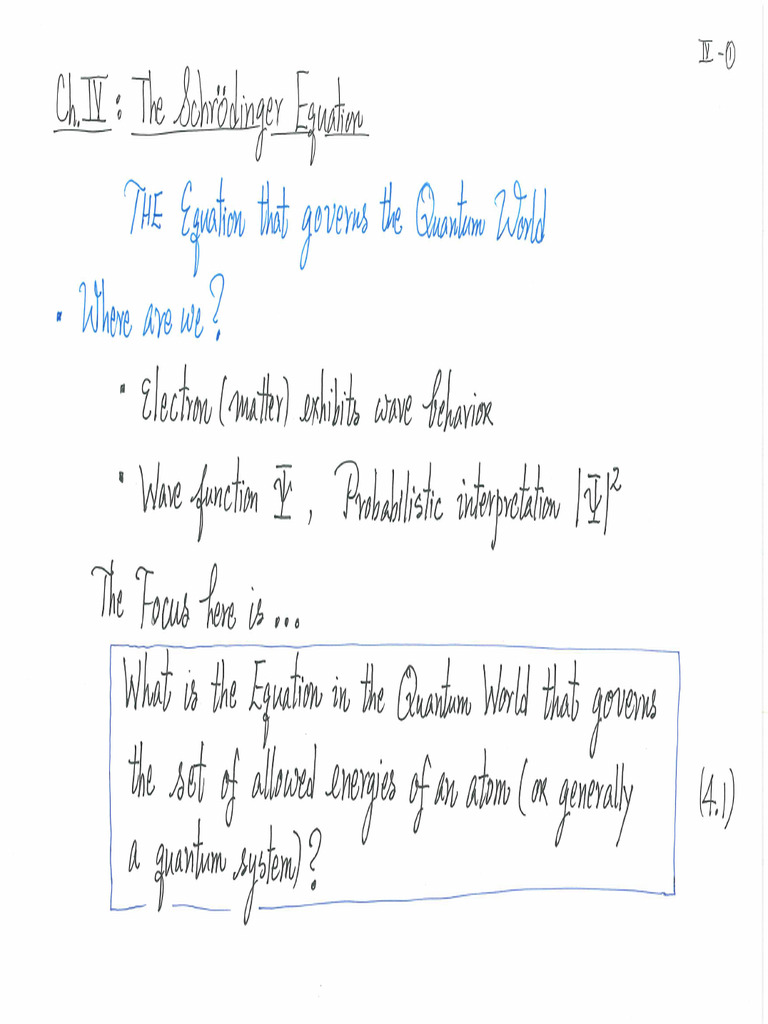 IV-①
Ch. IV: The Schrödinger Equation
THE Equation that governs the Quantum World
▪ Where are we?
▪ Electron (matter) exhibits wave behavior
▪ Wave function Ψ, Probabilistic interpretation |Ψ|²
The Focus here is...
What is the Equation in the Quantum World that governs
the set of allowed energies of an atom (or generally (4.1)
a quantum system)?